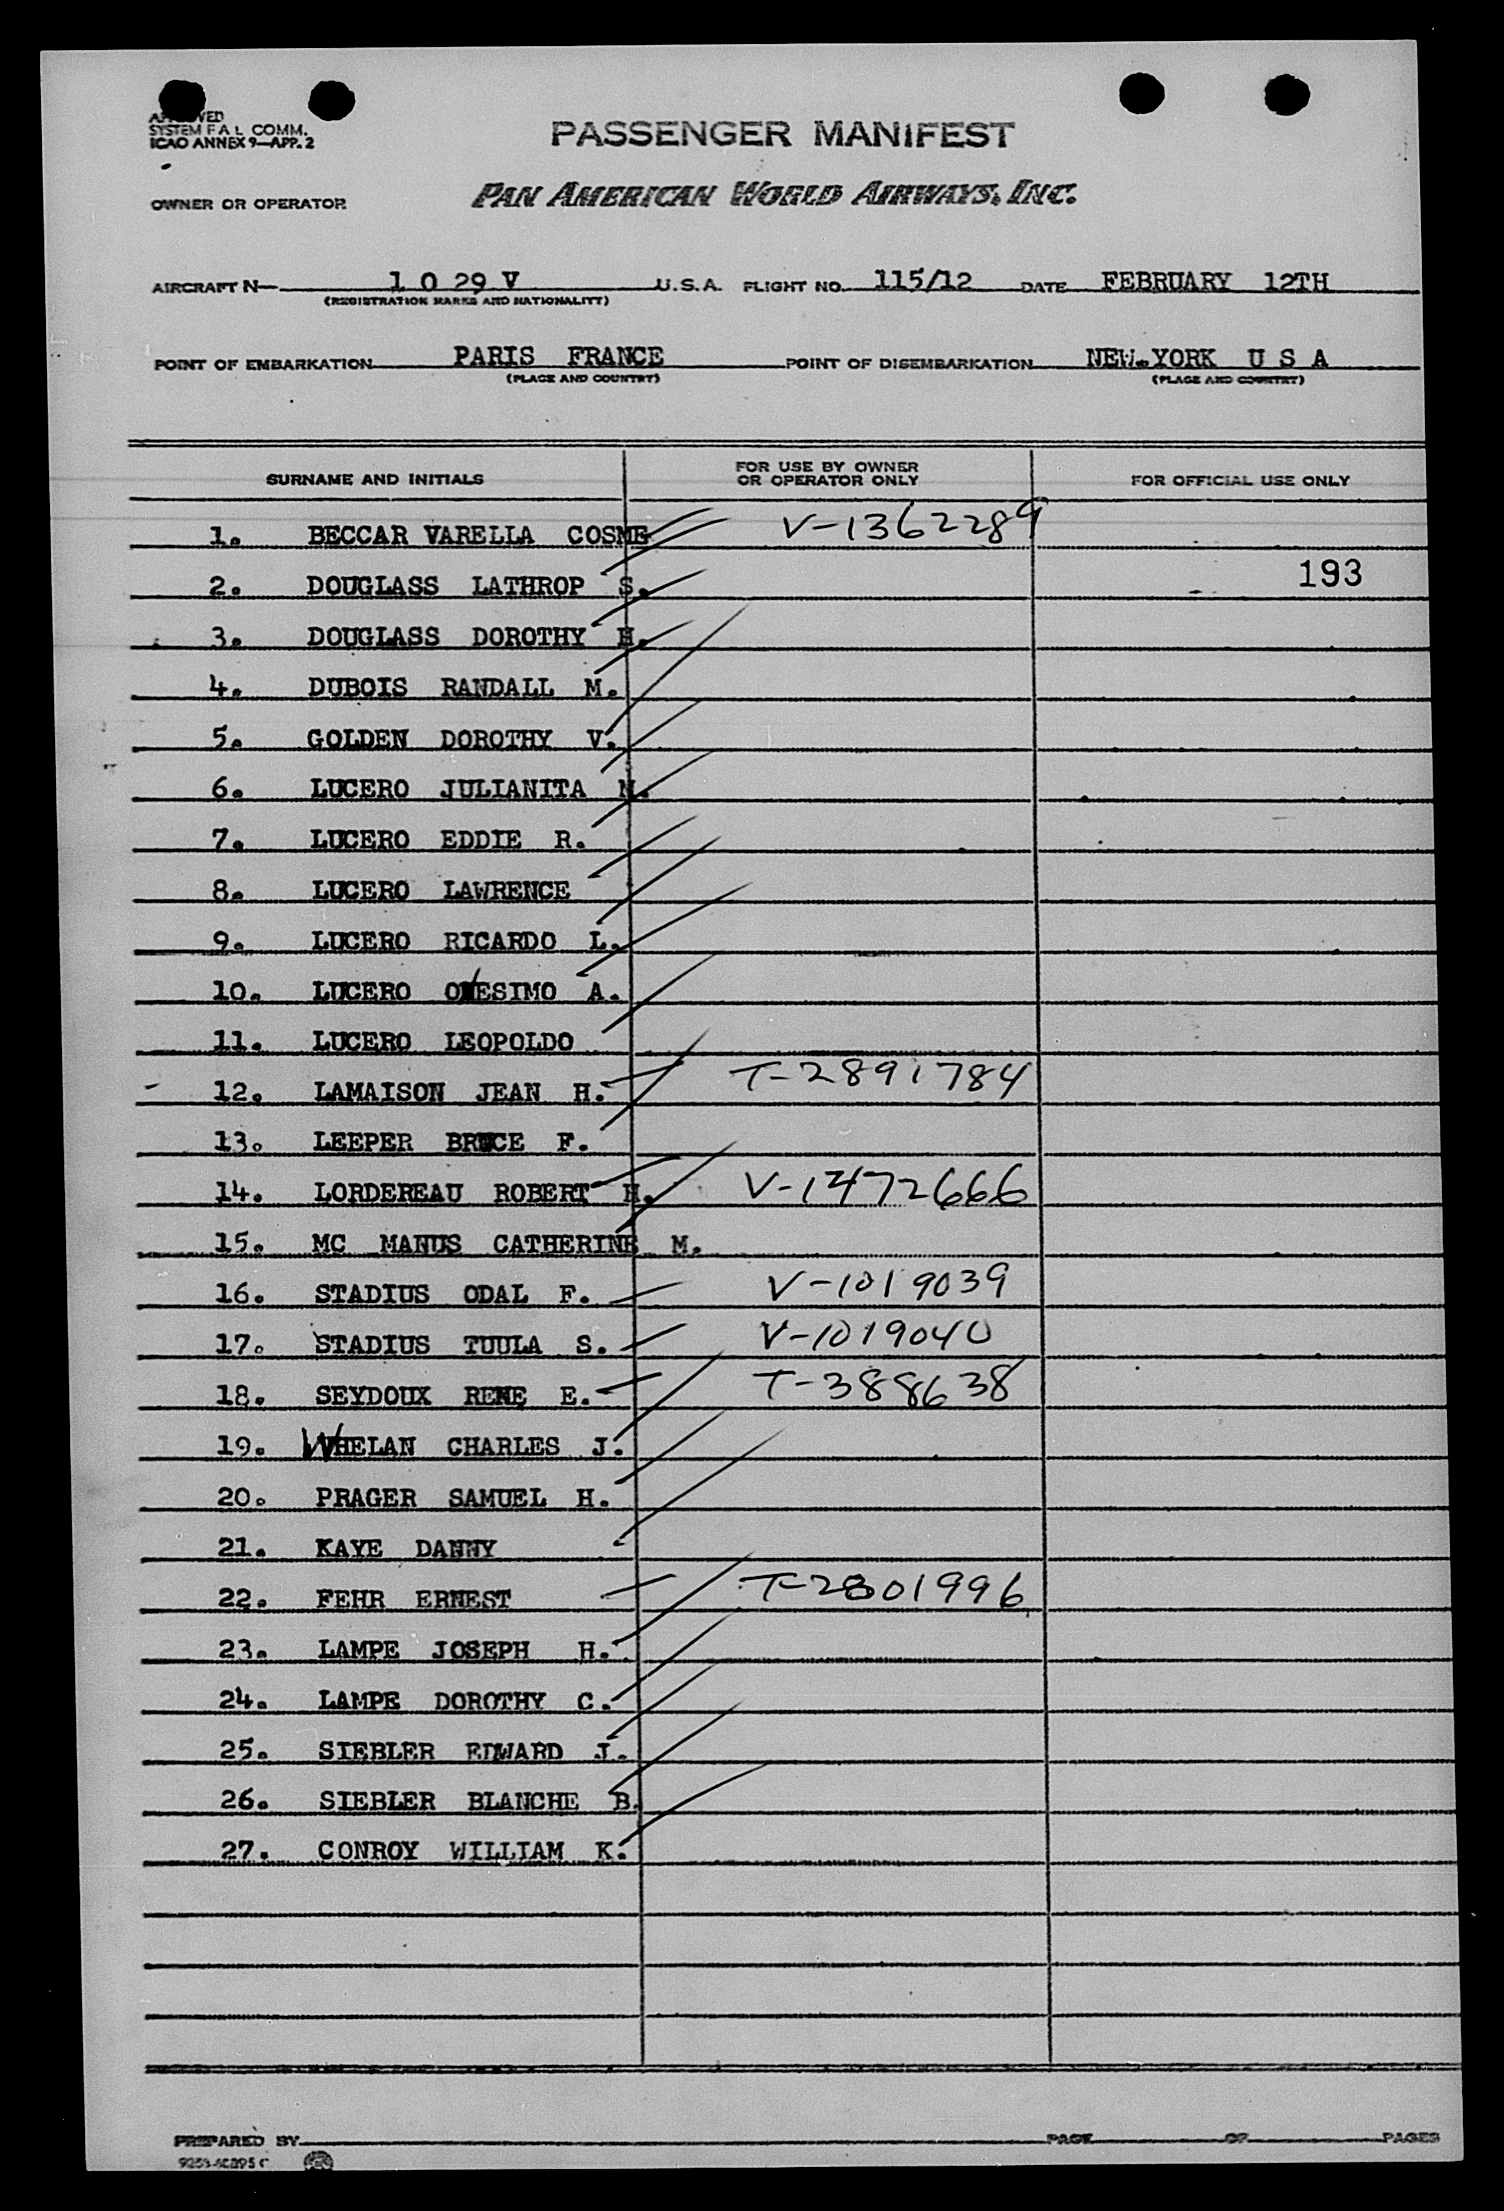 APPROVED
SYSTEM F A L COMM.
ICAO ANNEX 9—APP. 2
PASSENGER MANIFEST
OWNER OR OPERATOR
PAN AMERICAN WORLD AIRWAYS, INC.
AIRCRAFT N— 1 0 29 V U.S.A. FLIGHT NO. 115/12 DATE FEBRUARY 12TH
(REGISTRATION MARKS AND NATIONALITY)
POINT OF EMBARKATION PARIS FRANCE POINT OF DISEMBARKATION NEW YORK U S A
(PLACE AND COUNTRY) (PLACE AND COUNTRY)
SURNAME AND INITIALS FOR USE BY OWNER OR OPERATOR ONLY FOR OFFICIAL USE ONLY
1. BECCAR VARELLA COSME V-1362289
193
2. DOUGLASS LATHROP S.
3. DOUGLASS DOROTHY H.
4. DUBOIS RANDALL M.
5. GOLDEN DOROTHY V.
6. LUCERO JULIANITA N.
7. LUCERO EDDIE R.
8. LUCERO LAWRENCE
9. LUCERO RICARDO L.
10. LUCERO ONESIMO A.
11. LUCERO LEOPOLDO
12. LAMAISON JEAN H. T-2891784
13. LEEPER BRUCE F.
14. LORDEREAU ROBERT H. V-1472666
15. MC MANUS CATHERINE M.
16. STADIUS ODAL F. V-1019039
17. STADIUS TUULA S. V-1019040
18. SEYDOUX RENE E. T-388638
19. WHELAN CHARLES J.
20. PRAGER SAMUEL H.
21. KAYE DANNY
22. FEHR ERNEST T-2801996
23. LAMPE JOSEPH H.
24. LAMPE DOROTHY C.
25. SIEBLER EDWARD J.
26. SIEBLER BLANCHE B.
27. CONROY WILLIAM K.
PREPARED BY PAGE OF PAGES